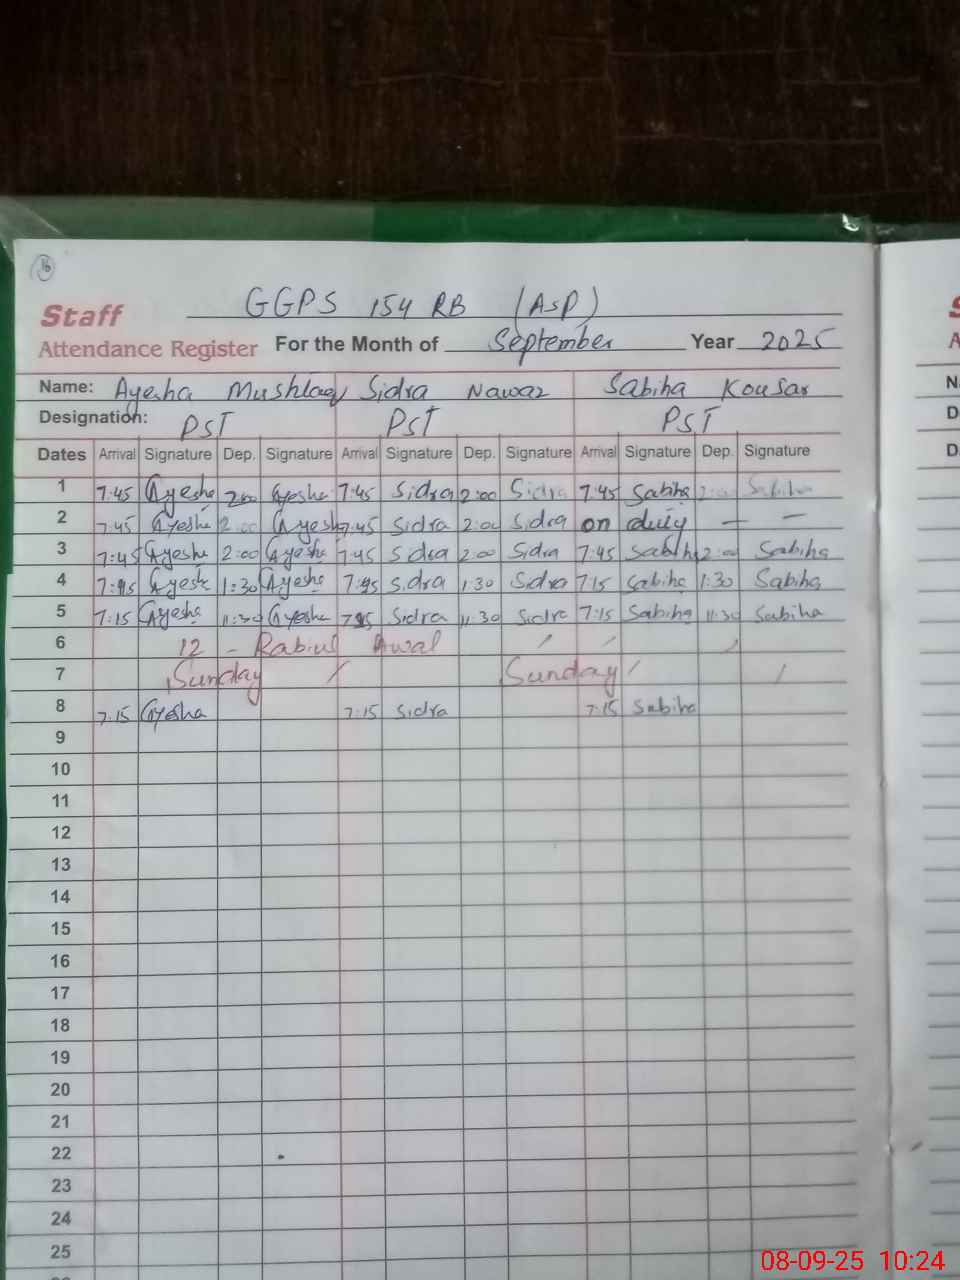 16
GGPS 154 RB (ASP)
Staff
Attendance Register For the Month of September Year 2025
Name: Ayesha Mushtaq Sidra Nawaz Sabiha Kousar
Designation: PST PST PST
Dates Arrival Signature Dep. Signature Arrival Signature Dep. Signature Arrival Signature Dep. Signature
1 7:45 Ayesha 2:00 Ayesha 7:45 Sidra 2:00 Sidra 7:45 Sabiha 2:00 Sabiha
2 7:45 Ayesha 2:00 Ayesha 7:45 Sidra 2:00 Sidra on duty — —
3 7:45 Ayesha 2:00 Ayesha 7:45 Sidra 2:00 Sidra 7:45 Sabiha 2:00 Sabiha
4 Ayesha 1:30 Ayesha Sidra 1:30 Sidra 7:15 Sabiha 1:30 Sabiha
5 7:15 Ayesha 11:30 Ayesha Sidra 11:30 Sidra 7:15 Sabiha 11:30 Sabiha
6 12 - Rabiul Awal
7 Sunday Sunday
8 7:15 Ayesha 7:15 Sidra 7:15 Sabiha
9
10
11
12
13
14
15
16
17
18
19
20
21
22
23
24
25
08-09-25 10:24